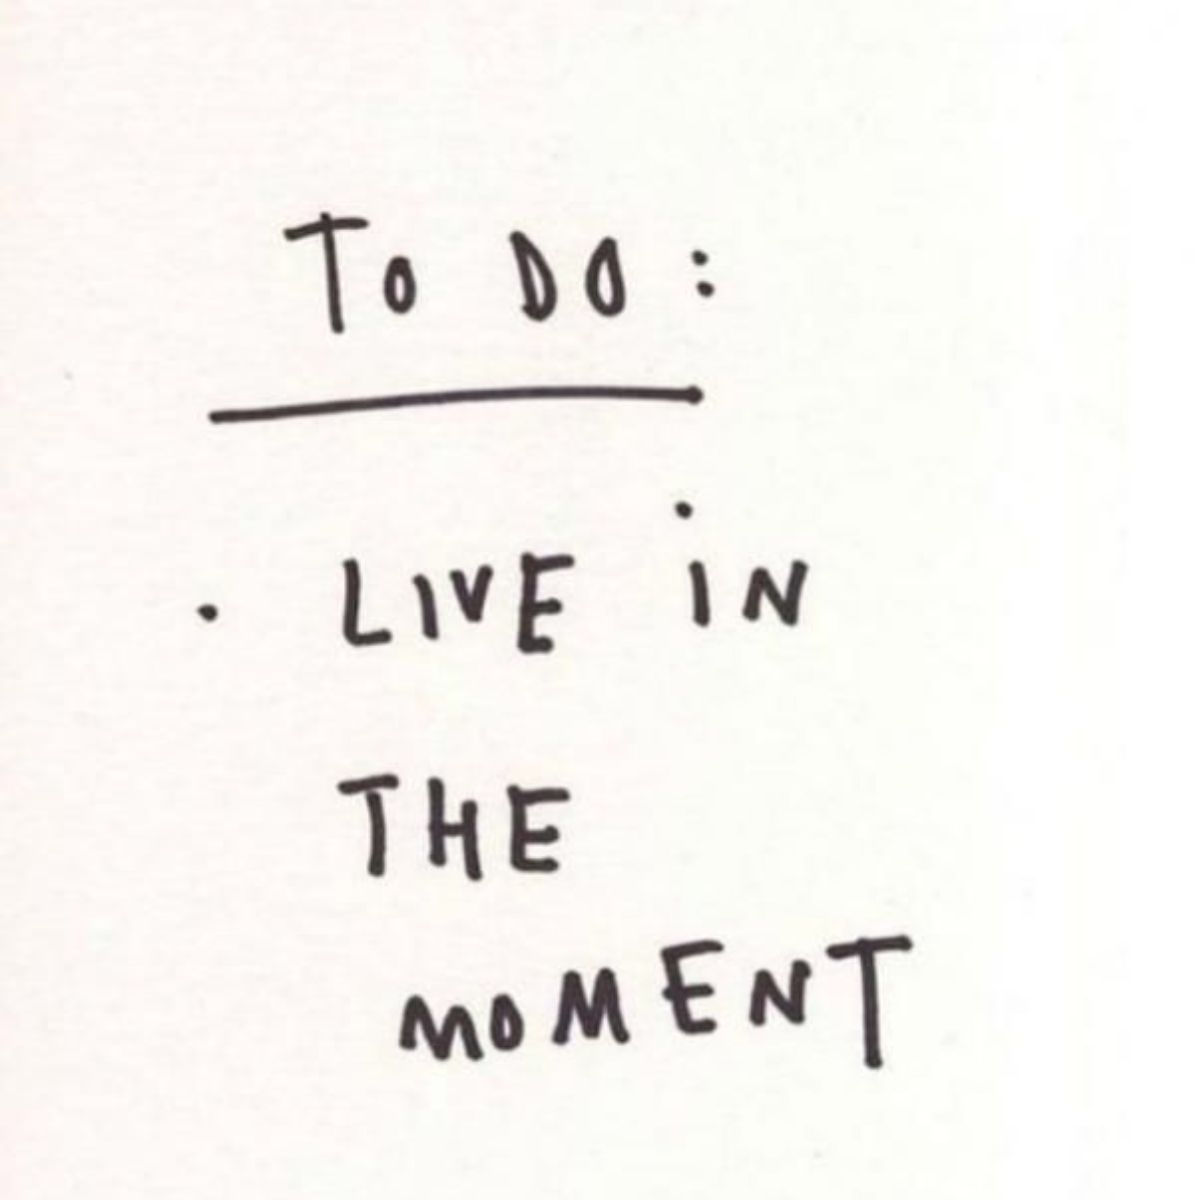 To DO:
· LIVE iN
THE
MOMENT